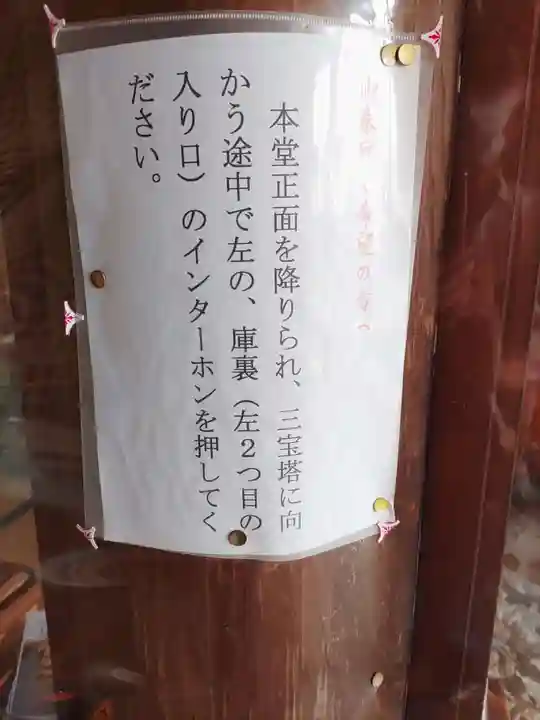 本堂正面を降りられ、三宝塔に向
かう途中で左の、庫裏（左２つ目の
入り口）のインターホンを押してく
ださい。